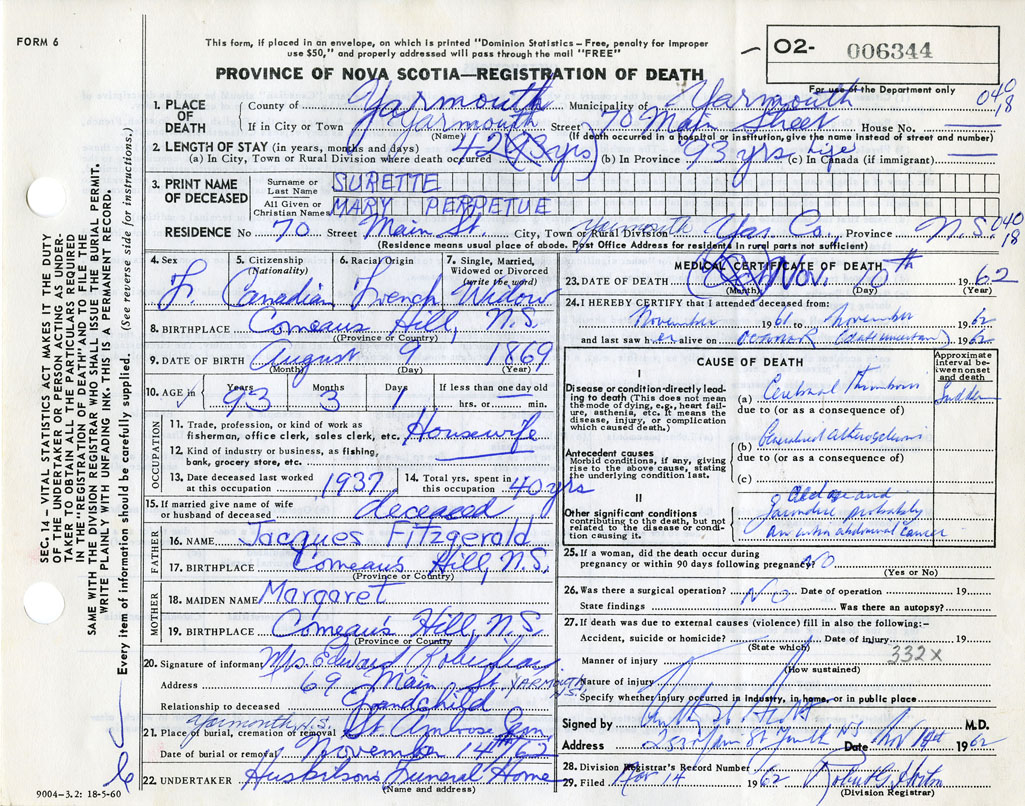 FORM 6
This form, if placed in an envelope, on which is printed "Dominion Statistics – Free, penalty for improper
use $50," and properly addressed will pass through the mail "FREE"
02- 006344
For use of the Department only
PROVINCE OF NOVA SCOTIA—REGISTRATION OF DEATH
040
18
1. PLACE OF DEATH
County of Yarmouth Municipality of Yarmouth
If in City or Town Yarmouth Street 70 Main Street House No.
(Name) (If death occurred in a hospital or institution, give the name instead of street and number)
2. LENGTH OF STAY (in years, months and days)
(a) In City, Town or Rural Division where death occurred 42 (93 yrs) (b) In Province 93 yrs (c) In Canada (if immigrant) life
3. PRINT NAME OF DECEASED
Surname or Last Name SURETTE
All Given or Christian Names MARY PERPETUE
RESIDENCE No 70 Street Main St. City, Town or Rural Division Yarmouth Yar. Co., Province N.S. 040 18
(Residence means usual place of abode. Post Office Address for residents in rural parts not sufficient)
4. Sex F.
5. Citizenship (Nationality) Canadian
6. Racial Origin French
7. Single, Married, Widowed or Divorced (write the word) Widow
8. BIRTHPLACE Comeaus Hill, N.S.
(Province or Country)
9. DATE OF BIRTH August 9 1869
(Month) (Day) (Year)
10. AGE in Years 93 Months 3 Days 1 If less than one day old hrs. or min.
OCCUPATION
11. Trade, profession, or kind of work as
fisherman, office clerk, sales clerk, etc. Housewife
12. Kind of industry or business, as fishing,
bank, grocery store, etc.
13. Date deceased last worked
at this occupation 1937
14. Total yrs. spent in
this occupation 40 yrs
15. If married give name of wife
or husband of deceased deceased
FATHER
16. NAME Jacques Fitzgerald
17. BIRTHPLACE Comeau's Hill, N.S.
(Province or Country)
MOTHER
18. MAIDEN NAME Margaret
19. BIRTHPLACE Comeau's Hill, N.S.
(Province or Country)
20. Signature of informant Mrs. Edward
Address 69 Main St. YARMOUTH N.S.
Relationship to deceased Grandchild
Yarmouth, N.S.
21. Place of burial, cremation or removal St. Ambrose
Date of burial or removal November 14th 62
22. UNDERTAKER Funeral Home
(Name and address)
9004-3.2: 18-5-60
MEDICAL CERTIFICATE OF DEATH
23. DATE OF DEATH Nov. 10th 1962
(Month) (Day) (Year)
24. I HEREBY CERTIFY that I attended deceased from:
November 1961 to November 1962
and last saw her alive on October 1962
CAUSE OF DEATH
Approximate interval between onset and death
I
Disease or condition directly leading to death (This does not mean the mode of dying, e.g., heart failure, asthenia, etc. It means the disease, injury, or complication which caused death)
(a) Cerebral Thrombosis Sudden
due to (or as a consequence of)
Antecedent causes
Morbid conditions, if any, giving rise to the above cause, stating the underlying condition last.
(b) Generalized atherosclerosis
due to (or as a consequence of)
(c)
II
Other significant conditions
contributing to the death, but not related to the disease or condition causing it.
Old age and
Jaundice probably
an intra abdominal cancer
25. If a woman, did the death occur during
pregnancy or within 90 days following pregnancy? NO
(Yes or No)
26. Was there a surgical operation? NO Date of operation 19
State findings Was there an autopsy?
27. If death was due to external causes (violence) fill in also the following:-
Accident, suicide or homicide? Date of injury 19
(State which)
332X
Manner of injury
(How sustained)
Nature of injury
Specify whether injury occurred in industry, in home, or in public place
Signed by M.D.
Address Date Nov 14th 1962
28. Division Registrar's Record Number
29. Filed Nov 14 1962
(Division Registrar)
SEC. 14 – VITAL STATISTICS ACT MAKES IT THE DUTY
OF THE UNDERTAKER OR PERSON ACTING AS UNDER-
TAKER TO OBTAIN ALL THE PARTICULARS REQUIRED
IN THE "REGISTRATION OF DEATH" AND TO FILE THE
SAME WITH THE DIVISION REGISTRAR WHO SHALL ISSUE THE BURIAL PERMIT.
WRITE PLAINLY WITH UNFADING INK. THIS IS A PERMANENT RECORD.
Every item of information should be carefully supplied. (See reverse side for instructions.)